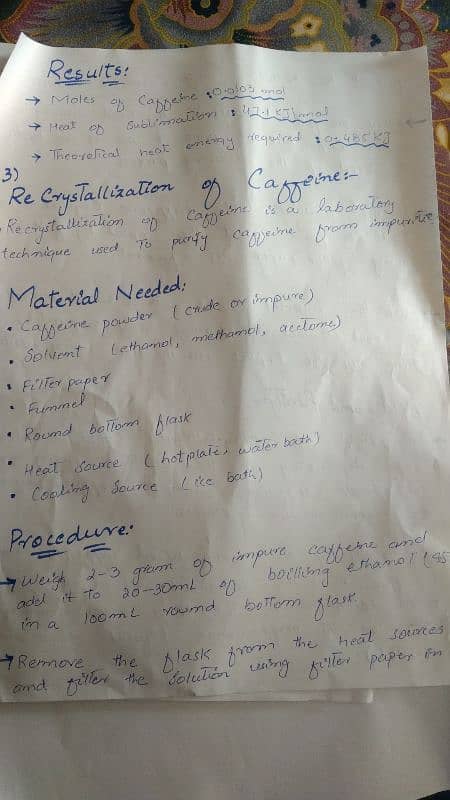 Results:
→ Moles of Caffeine : 0.0103 mol
→ Heat of Sublimation : 47.1 KJ/mol
→ Theoretical heat energy required : 0.485 KJ
3)
ReCrystallization of Caffeine:-
Recrystallization of Caffeine is a laboratory
technique used to purify caffeine from impuritie
Material Needed:
• Caffeine powder (crude or impure)
• Solvent (ethanol, methanol, acetone)
• Filter paper
• Funnel
• Round bottom flask
• Heat source (hotplate, water bath)
• Cooling Source (ice bath)
Procedure:
→ Weigh 2-3 gram of impure caffeine and
add it to 20-30mL of boiling ethanol (95
in a 100mL round bottom flask.
→ Remove the flask from the heat sources
and filter the solution using filter paper in